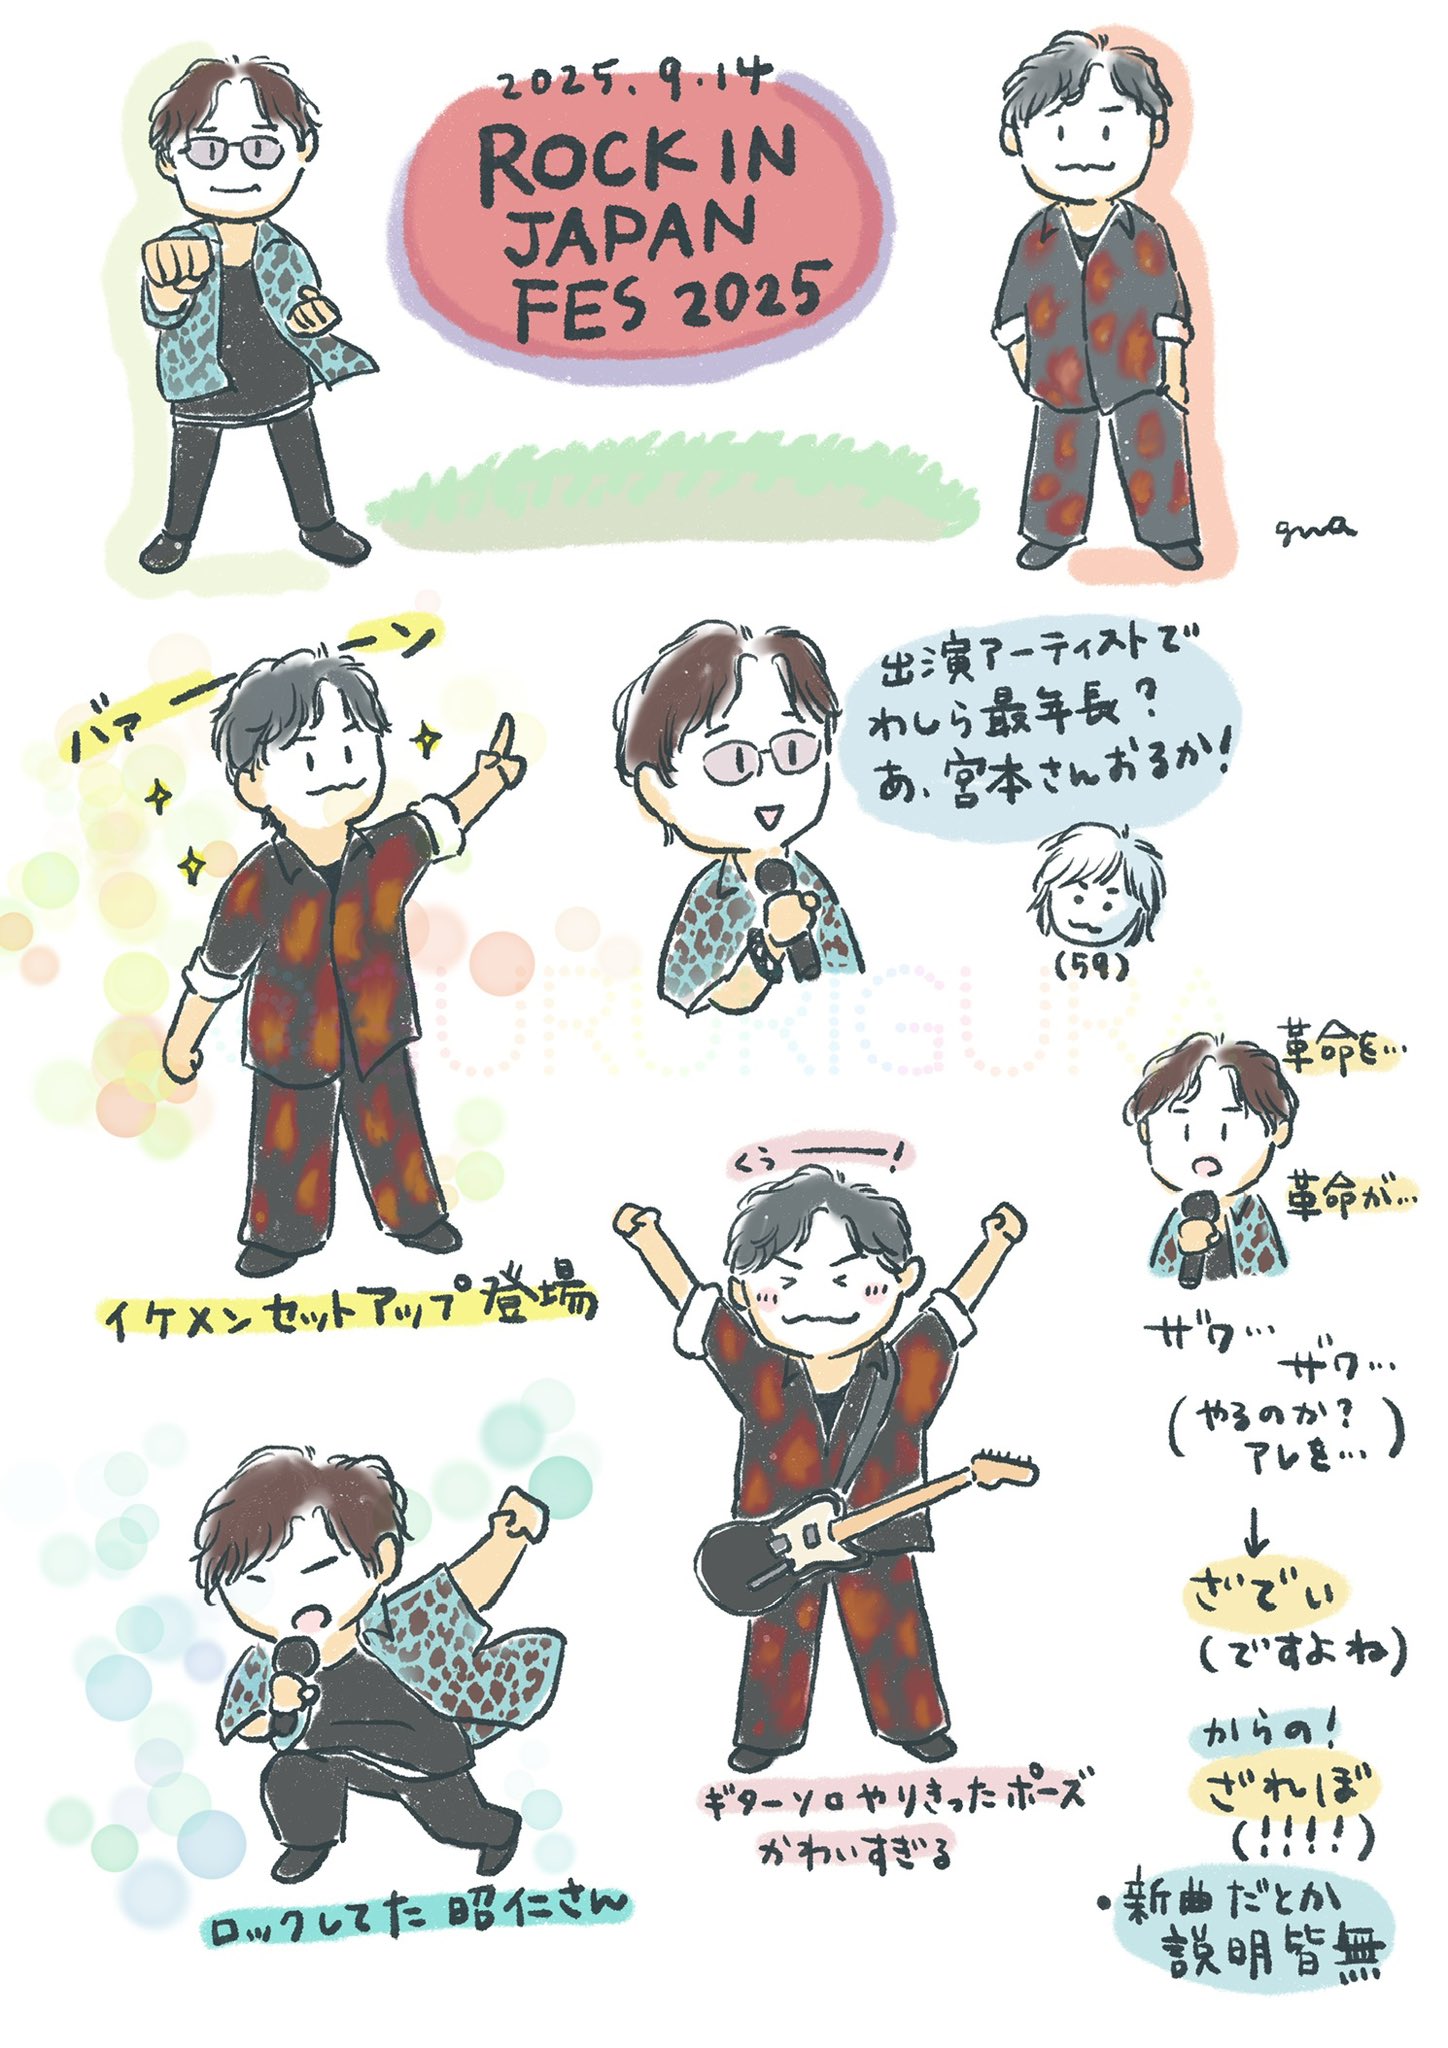 2025.9.14
ROCK IN
JAPAN
FES 2025
gura
バァーーーン
出演アーティストで
わしら最年長?
あ、宮本さんおるか!
(59)
イケメンセットアップ登場
くぅーー!
ギターソロやりきったポーズ
かわいすぎる
ロックしてた昭仁さん
革命を…
革命が…
ザワ…
ザワ…
(やるのか?
アレを…)
↓
ざでい
(ですよね)
からの!
ざれぼ
(!!!!)
・新曲だとか
説明皆無